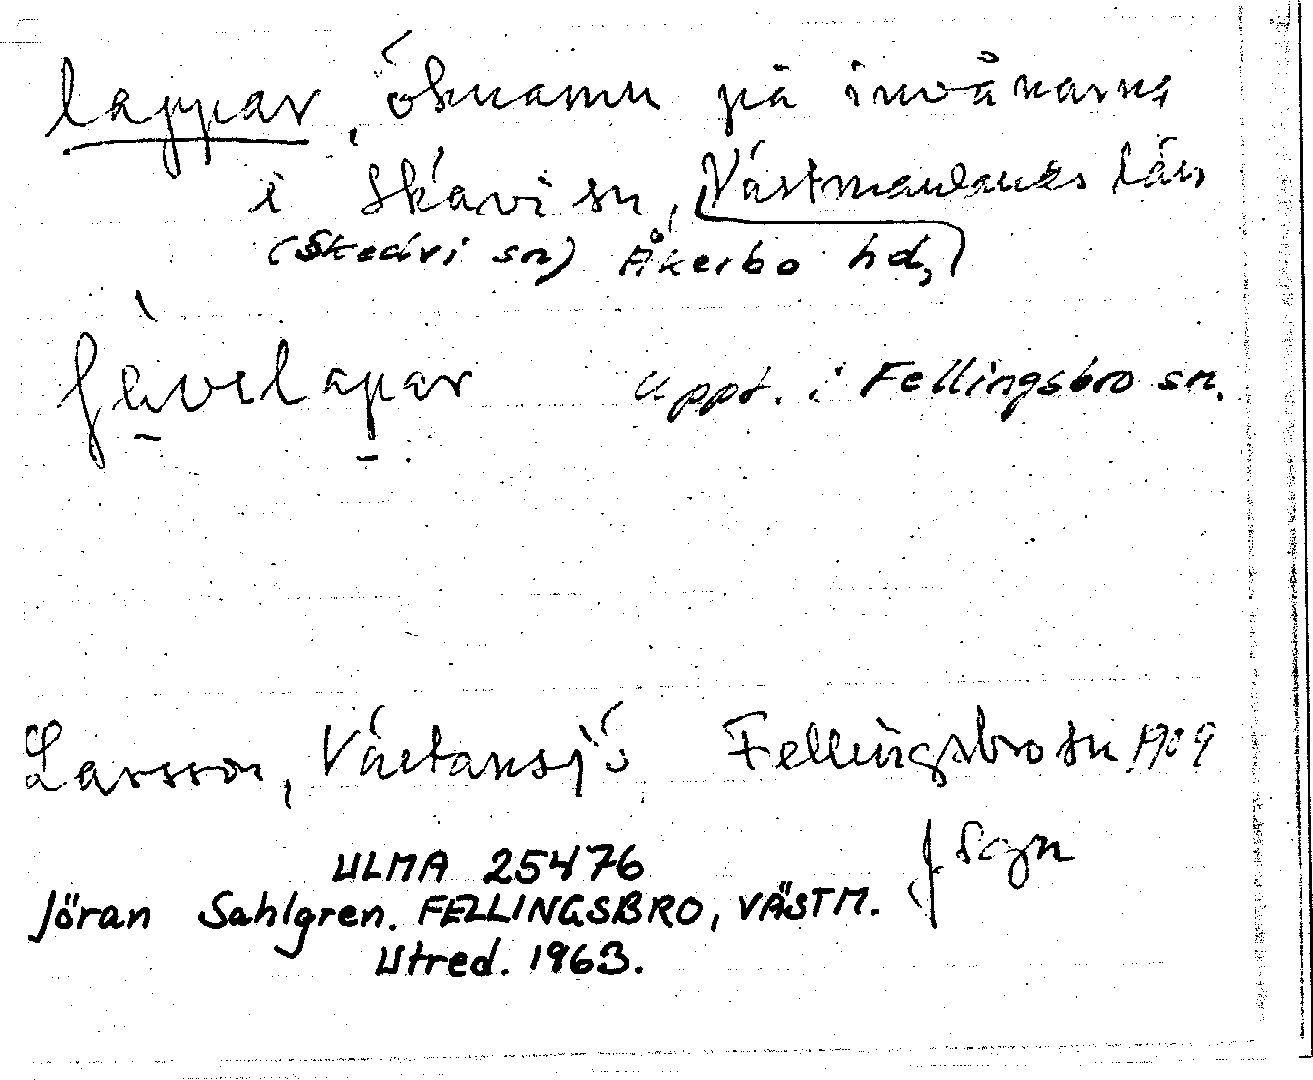 lappar, öknamn på invånarna
i Skävi sn, Västmanlands län
(Skedvi sn) Åkerbo hd,
uppt. i Fellingsbro sn.
Larsson, Västansjö Fellingsbro sn 1909
J Sgn
ULMA 25476
Jöran Sahlgren. FELLINGSBRO, VÄSTM.
Utred. 1963.